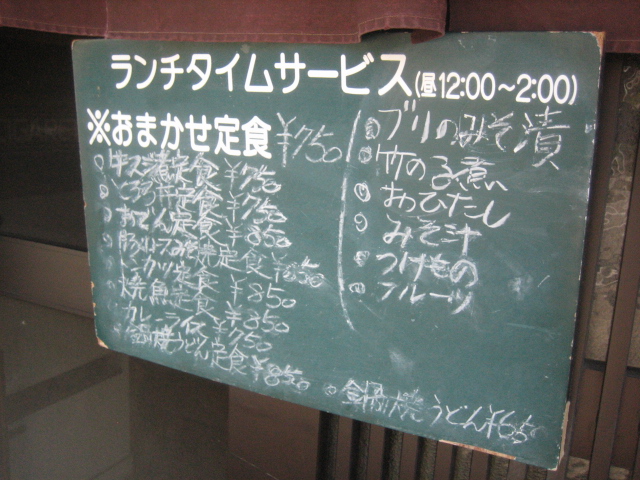 ランチタイムサービス(昼12:00~2:00)
※おまかせ定食 ¥750
牛スジ煮定食 ¥750
とろろ丼定食 ¥750
おでん定食 ¥850
豚ロースみそ焼定食 ¥850
チキンカツ定食
焼魚定食 ¥850
カレーライス ¥750
鍋焼うどん定食 ¥850
ブリのみそ漬
竹の子煮
おひたし
みそ汁
つけもの
フルーツ
鍋焼うどん ¥650